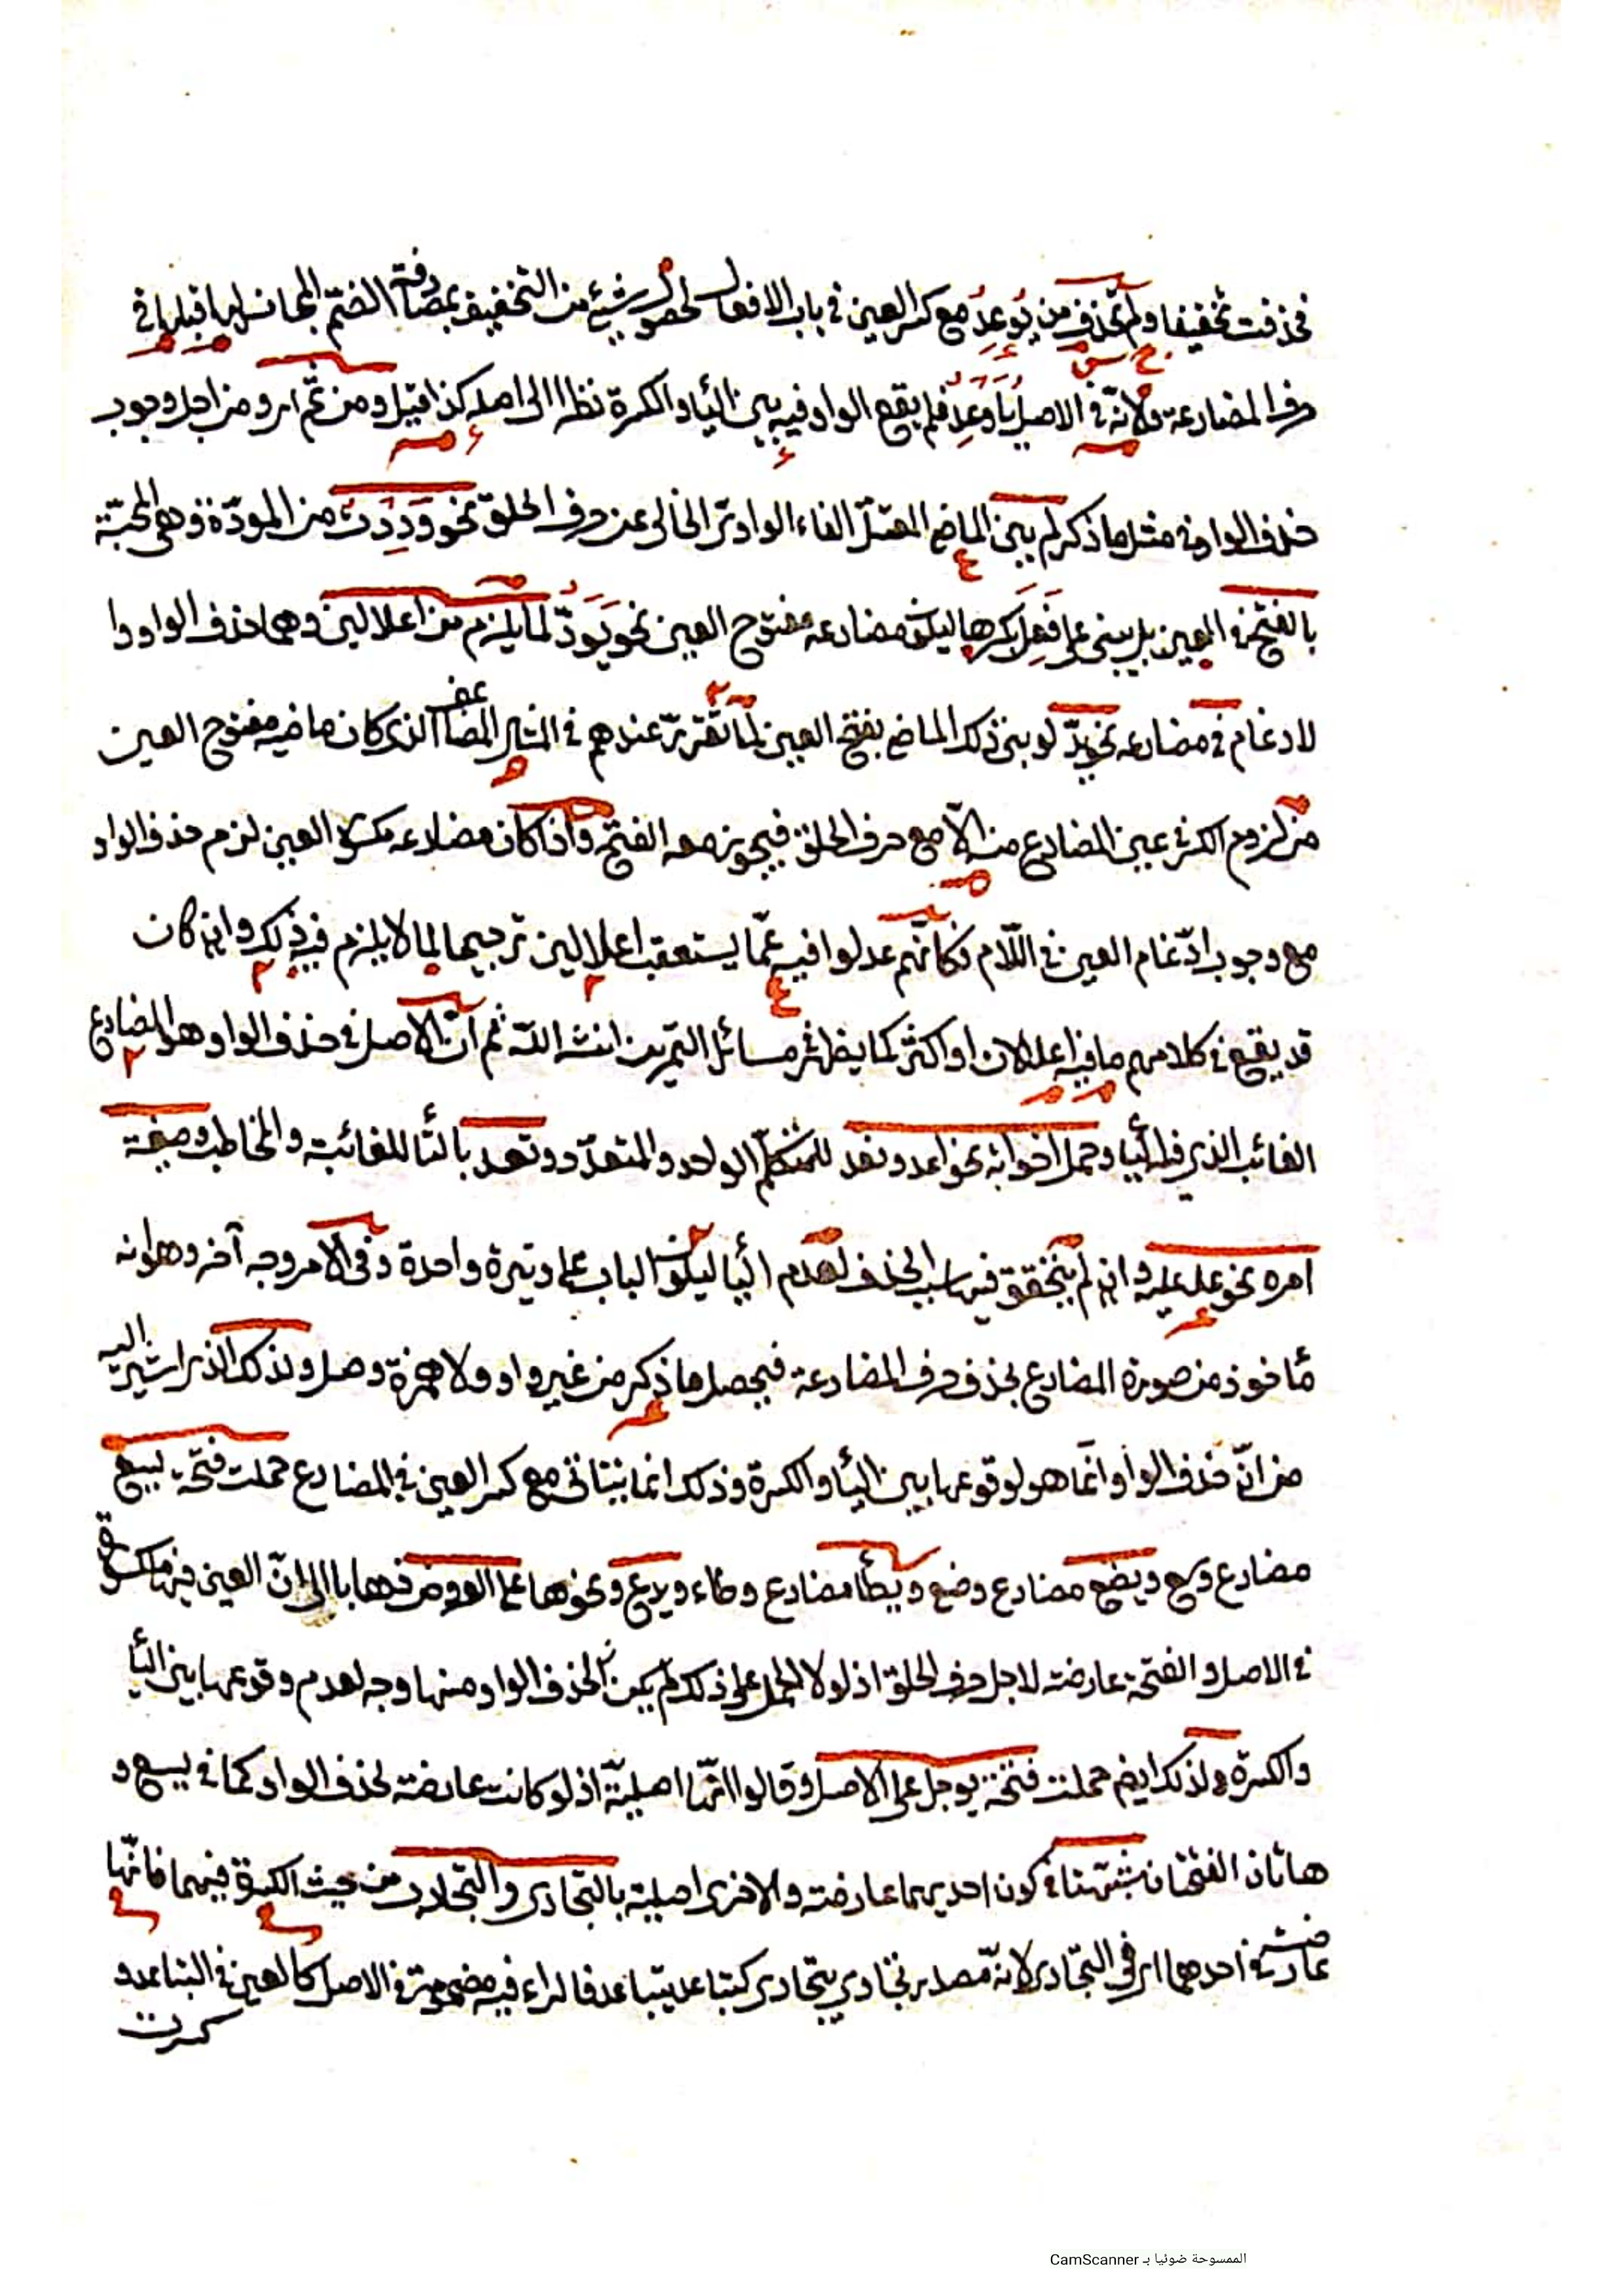 فحذفت تخفيفا ولم تحذف من يُوعِدُ مع كسر العين فى باب الافعال لحصول شيئ من التخفيف بمصادفة الضمّ المجانس لها قبلها فى
حرف المضارعة ولانّه فى الاصل يُأَوْعِدُ فلم يقع الواو فيه بين اليأ والكسرة نظرا الى اصله كذا قيل ومن ثمّ اى ومن اجل وجوب
حذف الواو فى مثل ما ذكر لم يبن الماضى المعتلّ الفاء الواوىّ الخالى عن حرف الحلق نحو وَدِدْتُ من المودّة وهى المحبّة
بالفتح فى العين بل يبنى على فَعِلَ بكسرها ليكون مضارعه مفتوح العين نحو يَوَدُّ لما يلزم من اعلالين وهما حذف الواو وا
لادغام فى مضارعه نحو يدّ لو بنى ذلك الماضى بفتح العين لما تقرّر عندهم فى المثال المضاعف الذى كان ماضيه مفتوح العين
من لزوم الكسر فى عين المضارع منه الّا مع حرف الحلق فيجوز معه الفتح واذا كان مضارعه مكسور العين لزم حذف الواو
مع وجوب ادّغام العين فى اللّام فكانّهم عدلوا فيه عمّا يستعقب اعلالين ترجيحا لما لا يلزم فيه ذلك وان كان
قد يقع فى كلامهم ما فيه اعلالان او اكثر كما يظهر فى مسائل التمرين انشاالله ثم انّ الاصل فى حذف الواو هو المضارع
الغائب الذى فيه اليأ وحمل اخواته نحو اعد ونعد للمتكلّم الواحد والمتعدّد وتعد بالتأ للغائبة والمخاطب وصيغة
امره نحو عد عليه وان لم يتحقق فيها سبب الحذف لعدم اليأ ليكون الباب على وتيرة واحدة وفى الامر وجه آخر وهو انه
مأخوذ من صورة المضارع بحذف حرف المضارعة فيحصل ما ذكر من غير واو ولا همزة وصل ولذلك الذى اشير اليه
من انّ حذف الواو انّما هو لوقوعها بين اليأ والكسرة وذلك انما يتأتى مع كسر العين فى المضارع حملت فتحة يسع
مضارع وسع ويضع مضارع وضع ويطأ مضارع وطاء ويدع ونحوها على العروض ذهابا الى انّ العين فيها مكسورة
فى الاصل والفتحة عارضة لاجل حرف الحلق اذ لولا الحمل على ذلك لم يكن لحذف الواو منها وجه لعدم وقوعها بين اليأ
والكسرة ولذلك ايضا حملت فتحة يوجل على الاصل وقالوا انّها اصليّة اذ لو كانت عارضة لحذف الواو كما فى يسع و
هاتان الفتحتان شبّهتا فى كون احديهما عارضة والاخرى اصلية بالتجارى والتجارب من حيث الكسرة فيهما فانّها
عارضة فى احدهما اى فى التجارى لانّه مصدر تجارى يتجارى كتباعد يتباعد فالراء فيه مضمومة فى الاصل كالعين فى التباعد و
كسرت
الممسوحة ضوئيا بـ CamScanner